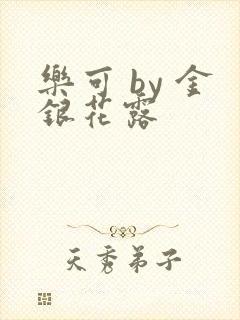 樂可 by 金
銀花露
天秀弟子